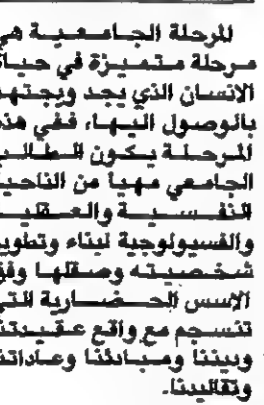 المرحلة الجامعية هي
مرحلة متميزة في حياة
الانسان الذي يجد ويجتهد
بالوصول اليها، ففي هذه
المرحلة يكون الطالب
الجامعي مهيا من الناحية
النفسية والعقلية
والفسيولوجية لبناء وتطوير
شخصيته وصقلها وفق
الاسس الحضارية التي
تنسجم مع واقع عقيدتنا
وديننا ومبادئنا وعاداتنا
وتقاليدنا.